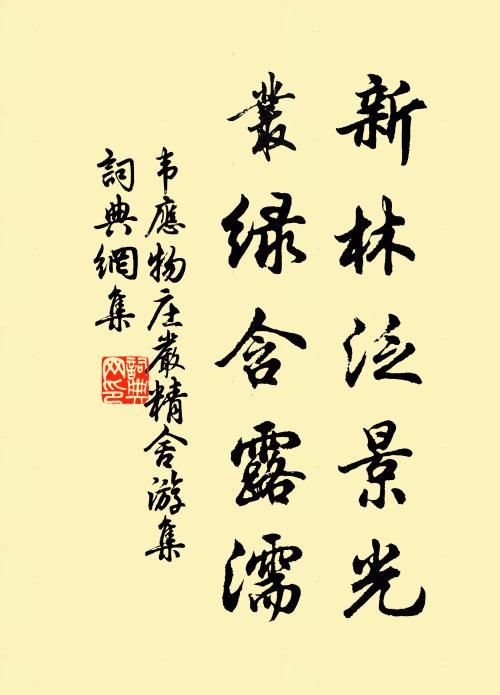 新林泛景光
叢绿含露濡
韦應物庄嚴精舍游集
詞典網集
詞典網印